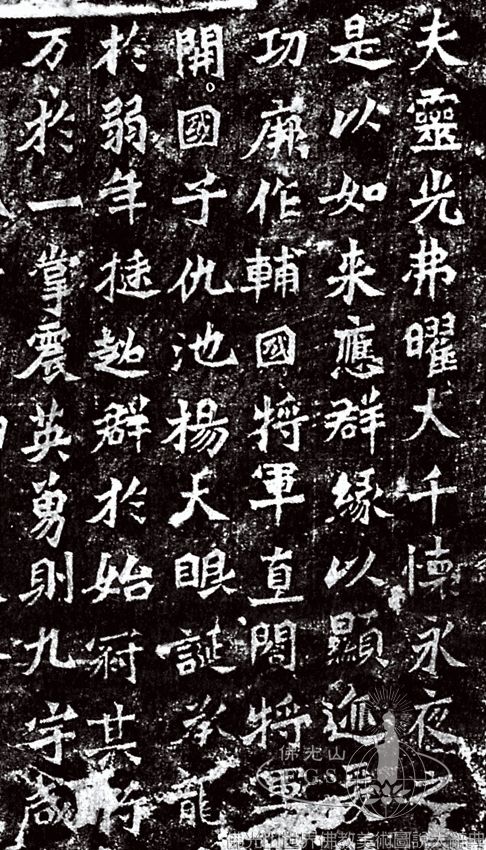 夫靈光弗曜大千懷永夜之
是以如来應群緣以顯迹爰
功厥作輔國將軍直閤將軍
開國子仇池楊大眼誕承龍
於弱年挺超群於始冠其
万於一掌震英勇則九宇咸
佛光山
F.G.S.
佛光山世界佛教美術圖說大辭典